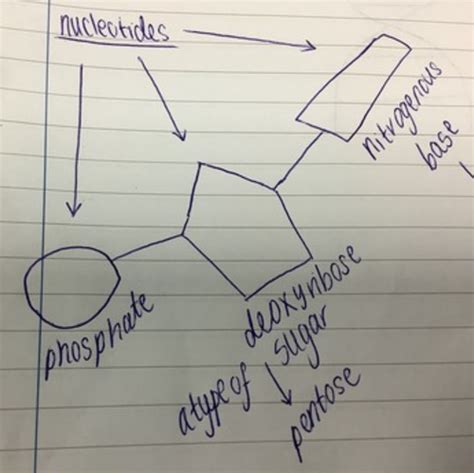 nucleotides
nitrogenous
base
phosphate
deoxyribose
sugar
a type of
pentose